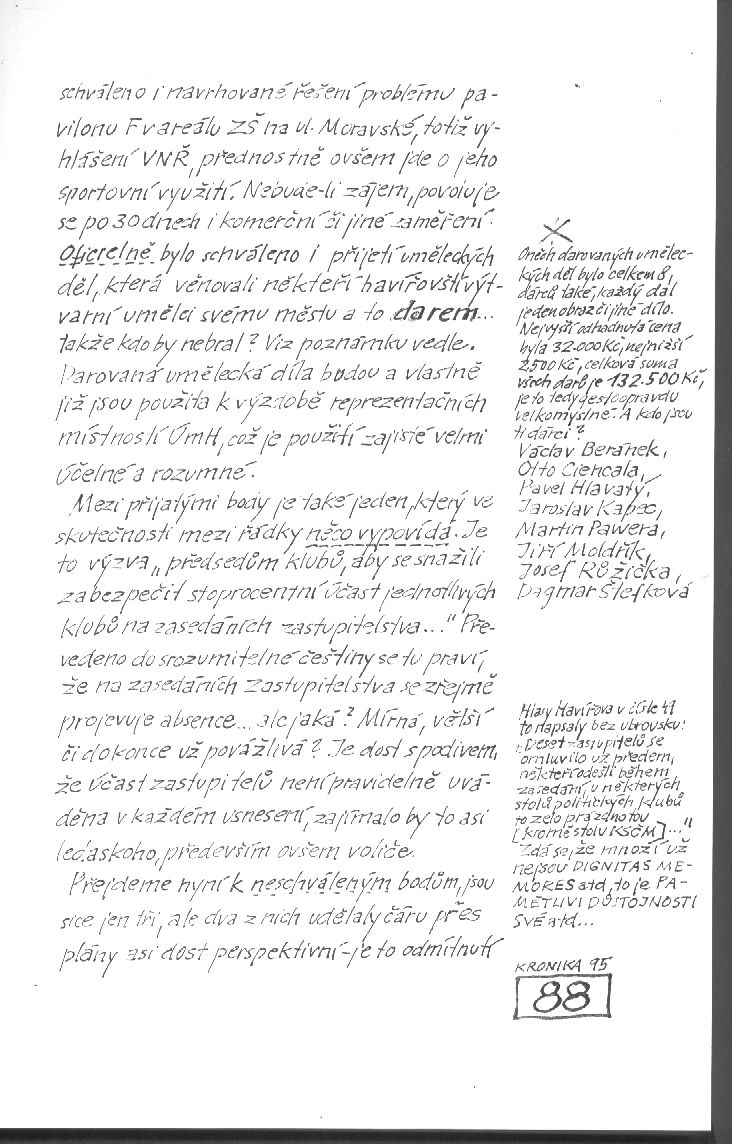 schváleno i navrhované řešení problému pa-
vilonu F v areálu ZŠ na ul. Moravské, totiž vy-
hlášení VNŘ, přednostně ovšem jde o jeho
sportovní využití. Nebude-li zájem, povoluje
se po 30 dnech i komerční či jiné zaměření.
Oficielně bylo schváleno i přijetí uměleckých
děl, která věnovali někteří havířovští výt-
varní umělci svému městu a to darem...
takže kdo by nebral? Viz poznámku vedle.
Darovaná umělecká díla budou a vlastně
již jsou použita k výzdobě reprezentačních
místností ÚmH, což je použití zajisté velmi
účelné a rozumné.
Mezi přijatými body je také jeden, který ve
skutečnosti mezi řádky něco vypovídá. Je
to výzva „předsedům klubů, aby se snažili
zabezpečit stoprocentní účast jednotlivých
klubů na zasedáních zastupitelstva..." Pře-
vedeno do srozumitelné češtiny se tu praví,
že na zasedáních zastupitelstva se zřejmě
projevuje absence... ale jaká? Mírná, větší
či dokonce už povážlivá? Je dost s podivem,
že účast zastupitelů není pravidelně uvá-
děna v každém usnesení, zajímalo by to asi
leckoho, především ovšem voliče.
Přejdeme nyní k neschváleným bodům, jsou
sice jen tři, ale dva z nich udělaly čáru přes
plány asi dost perspektivní - je to odmítnutí
X
Oněch darovaných umělec-
kých děl bylo celkem 8,
dárců také, každý dal
jeden obraz či jiné dílo.
Nejvyšší odhadnutá cena
byla 32.000 Kč, nejnižší
2.500 Kč, celková suma
všech darů je 132.500 Kč,
je to tedy gesto opravdu
velkomyslné. A kdo jsou
ti dárci?
Václav Beránek,
Otto Cienciala,
Pavel Hlavatý,
Jaroslav Kapec,
Martin Pawera,
Jiří Moldřík,
Josef Růžička,
Dagmar Štefková
Hlasy Havířova v čísle 49
to napsaly bez ubrousku:
„Deset zastupitelů se
omluvilo už předem,
někteří odešli během
zasedání, u některých
stolů politických klubů
to zelo prázdnotou
[kromě stolu KSČM]..."
Zdá se, že mnozí už
nejsou DIGNITAS ME-
MORES atd, to je PA-
MĚTLIVI DŮSTOJNOSTI
SVÉ atd...
KRONIKA 95
88